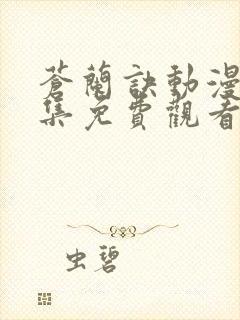 蒼蘭訣動漫
集免費觀看
虫碧